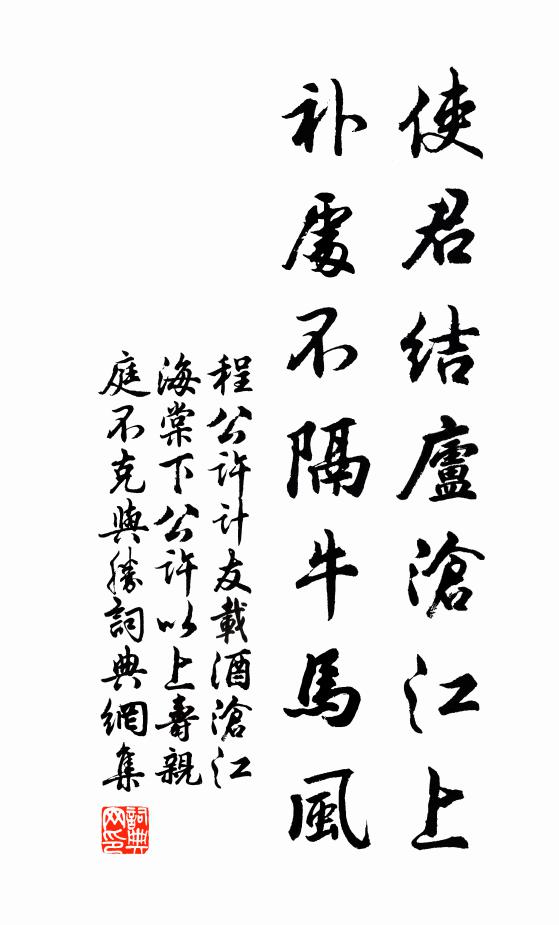 使君結廬滄江上
补處不隔牛馬風
程公許計友載酒滄江
海棠下公許以上壽親
庭不克與勝詞典網集
詞典网印